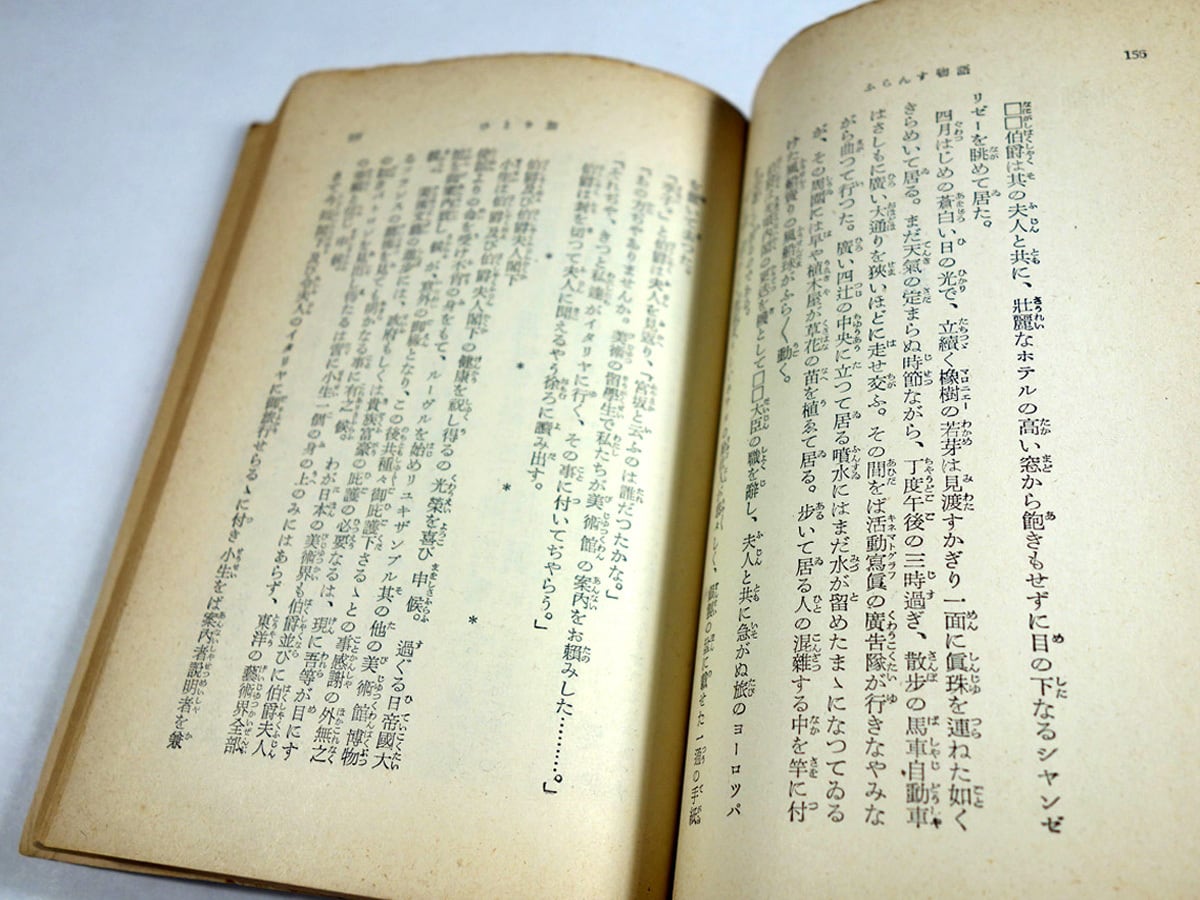 156
ふらんす物語
□□伯爵は其の夫人と共に、壯麗なホテルの高い窓から飽きもせずに目の下なるシャンゼ
リゼーを眺めて居た。
四月はじめの蒼白い日の光で、立續く橡樹の若芽は見渡すかぎり一面に眞珠を連ねた如く
きらめいて居る。まだ天氣の定まらぬ時節ながら、丁度午後の三時過ぎ、散步の馬車自動車
はさしもに廣い大通りを狹いほどに走せ交ふ。その間をば活動寫眞の廣告隊が行きなやみな
がら曲つて行つた。廣い四辻の中央に立つて居る噴水にはまだ水が留めたまゝになつてゐる
が、その周圍には早や植木屋が草花の苗を植ゑて居る。步いて居る人の混雜する中を竿に付
けた風船賣りの風船球がふら〱動く。
として□□大臣の職を辭し、夫人と共に急がぬ旅のヨーロツパ
に載せた一通の手紙
た。
と伯爵は夫人を見返り、「宮坂と云ふのは誰だつたかな。」
「あの方ぢやありませんか。美術の留學生で私たちが美術館の案内をお賴みした………。」
「それぢや、きつと私達がイタリヤに行く、その事に付いてぢやらう。」
伯爵は封を切つて夫人に聞えるやう徐ろに讀み出す。
* * * *
伯爵及び伯爵夫人閣下
小生は伯爵及び伯爵夫人閣下の健康を祝し得るの光榮を喜び申候。過ぐる日帝國大
使館よりの命を受け不肖の身をもて、ルーヴルを始めリユキザンブル其の他の美術館博物
館を御案内致し候が、意外の御緣となり、この後共種々御庇護下さるゝとの事感謝の外無之
候。美術文藝の進步には、政府もしくは貴族富豪の庇護の必要なるは、現に吾等が目にす
るフランスの を見ても明かなる事に有之候。わが日本の美術界も伯爵並びに伯爵夫人
の を見出し得たるは啻に小生一個の身の上のみにはあらず、東洋の藝術界全部
申候。
さて 及び令夫人のイタリヤに御旅行せらるゝに付き小生をば案内者說明者を兼